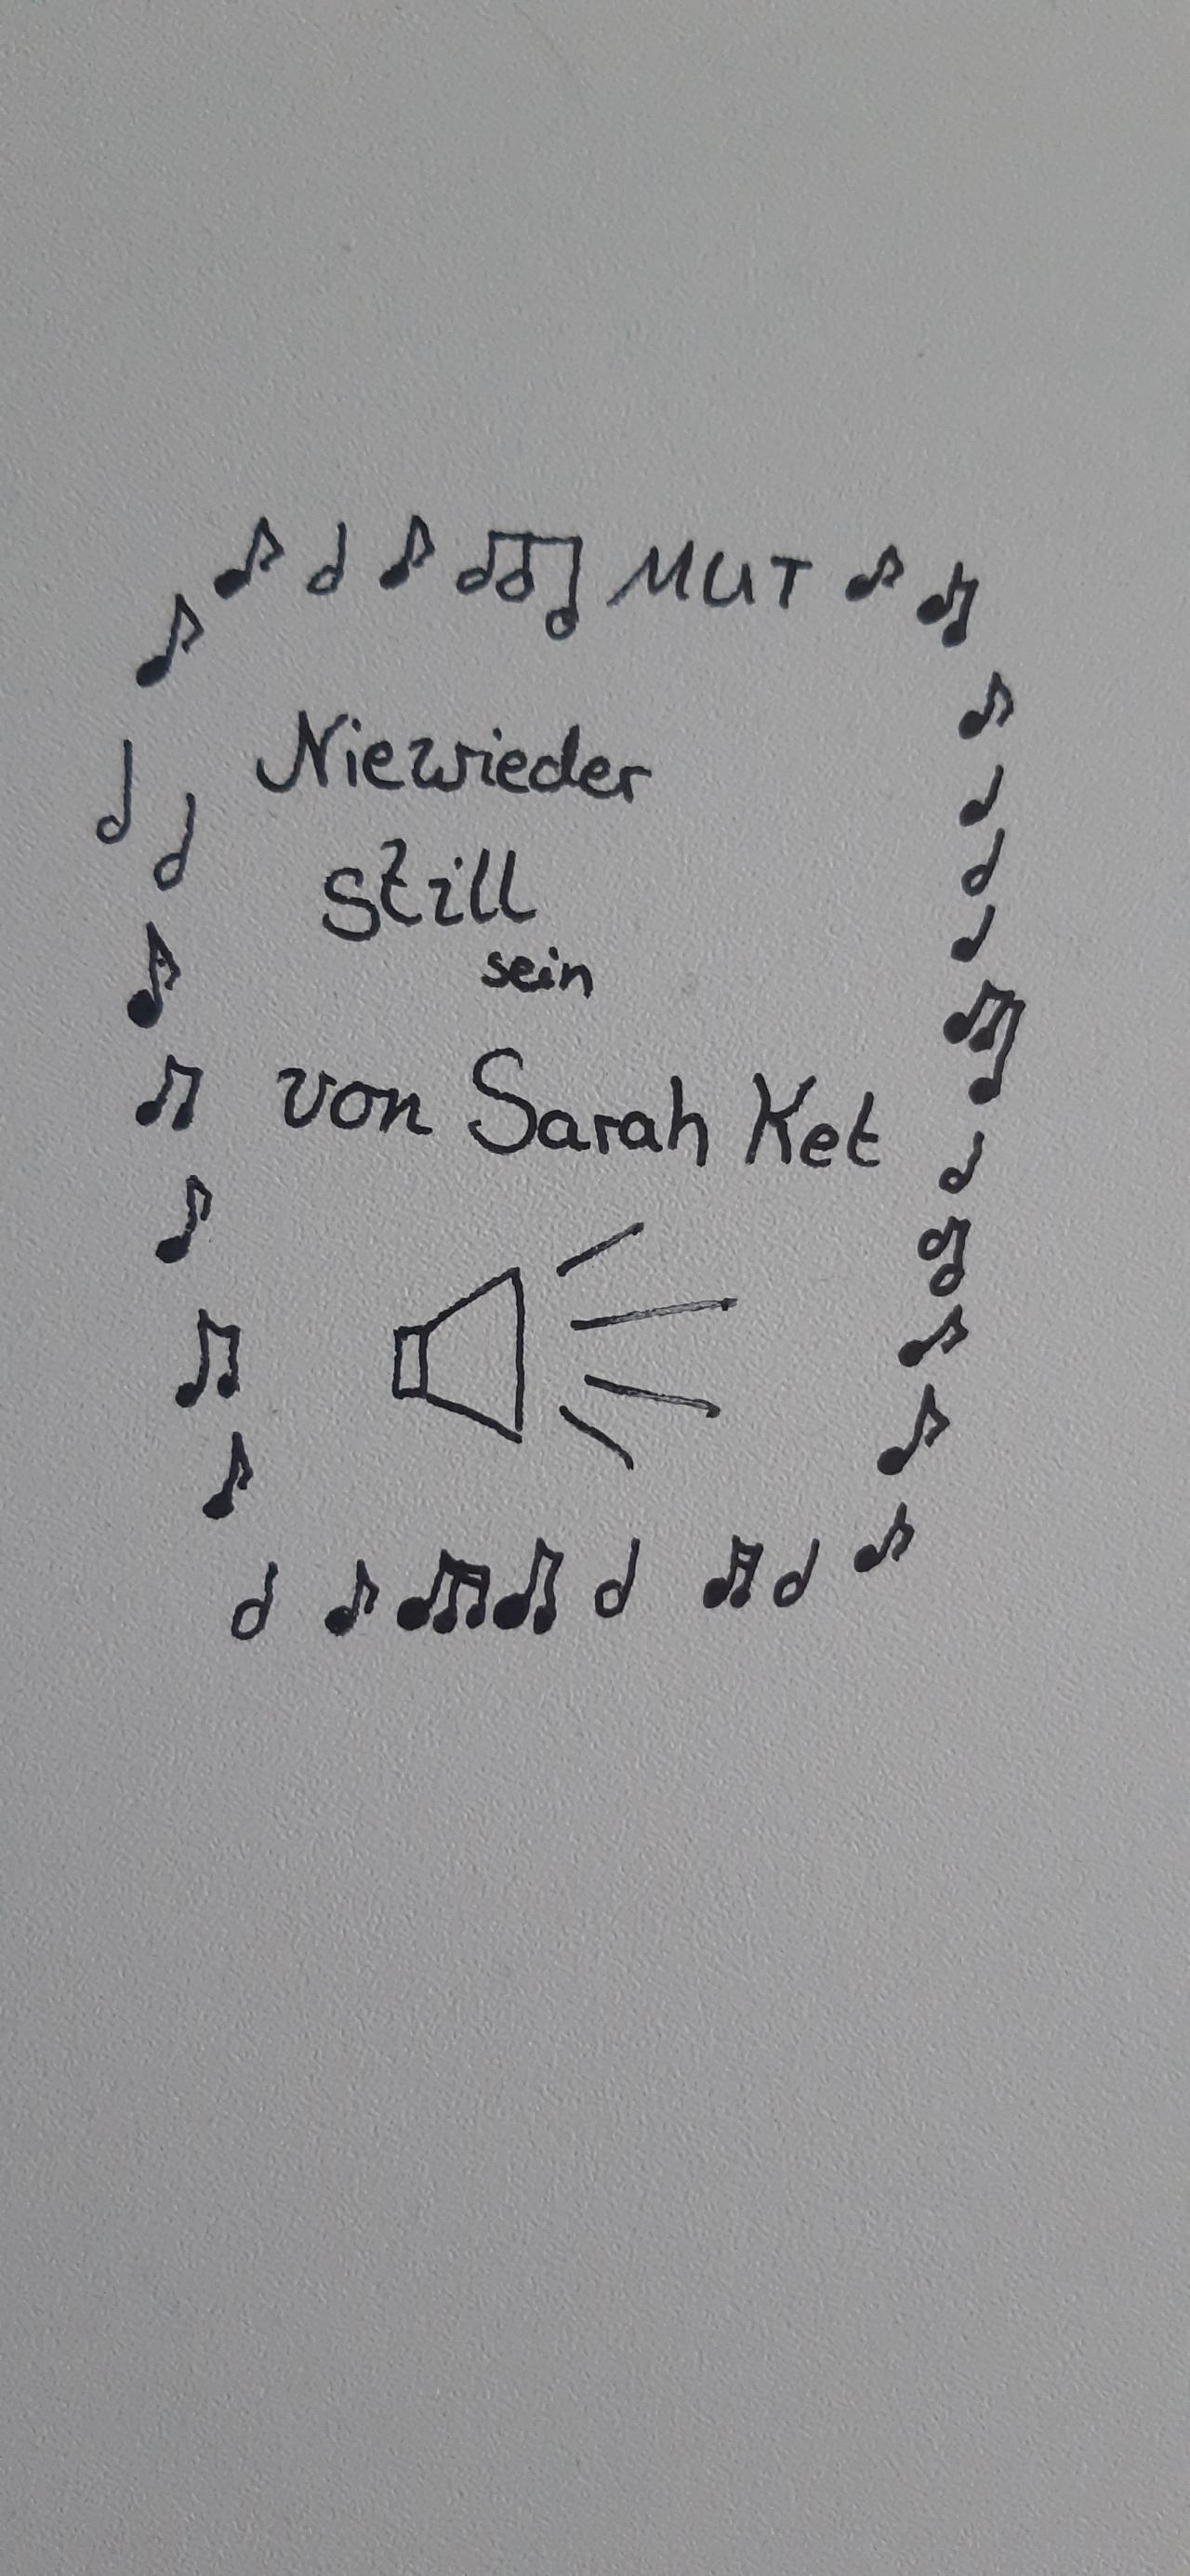 MUT
Niewieder
still
sein
von Sarah Ket